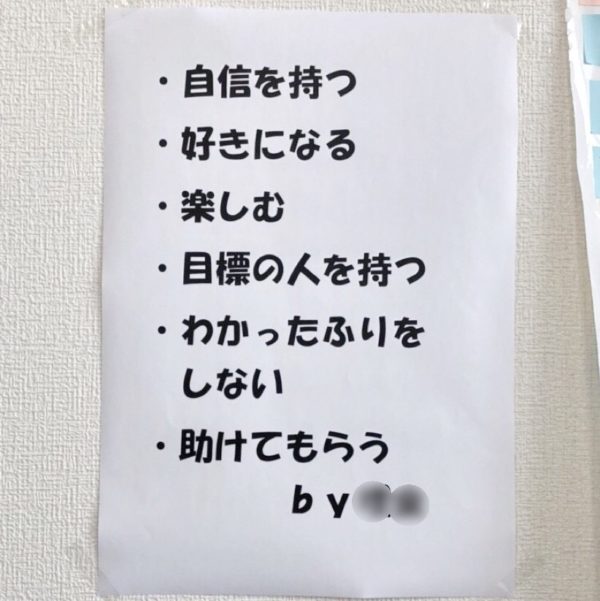 ・自信を持つ
・好きになる
・楽しむ
・目標の人を持つ
・わかったふりを
しない
・助けてもらう
by